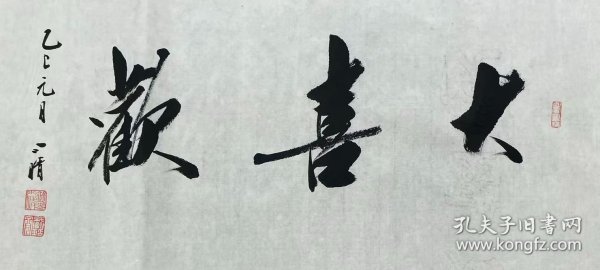 大喜歡
乙巳元月
一清
孔夫子旧书网
www.kongfz.com